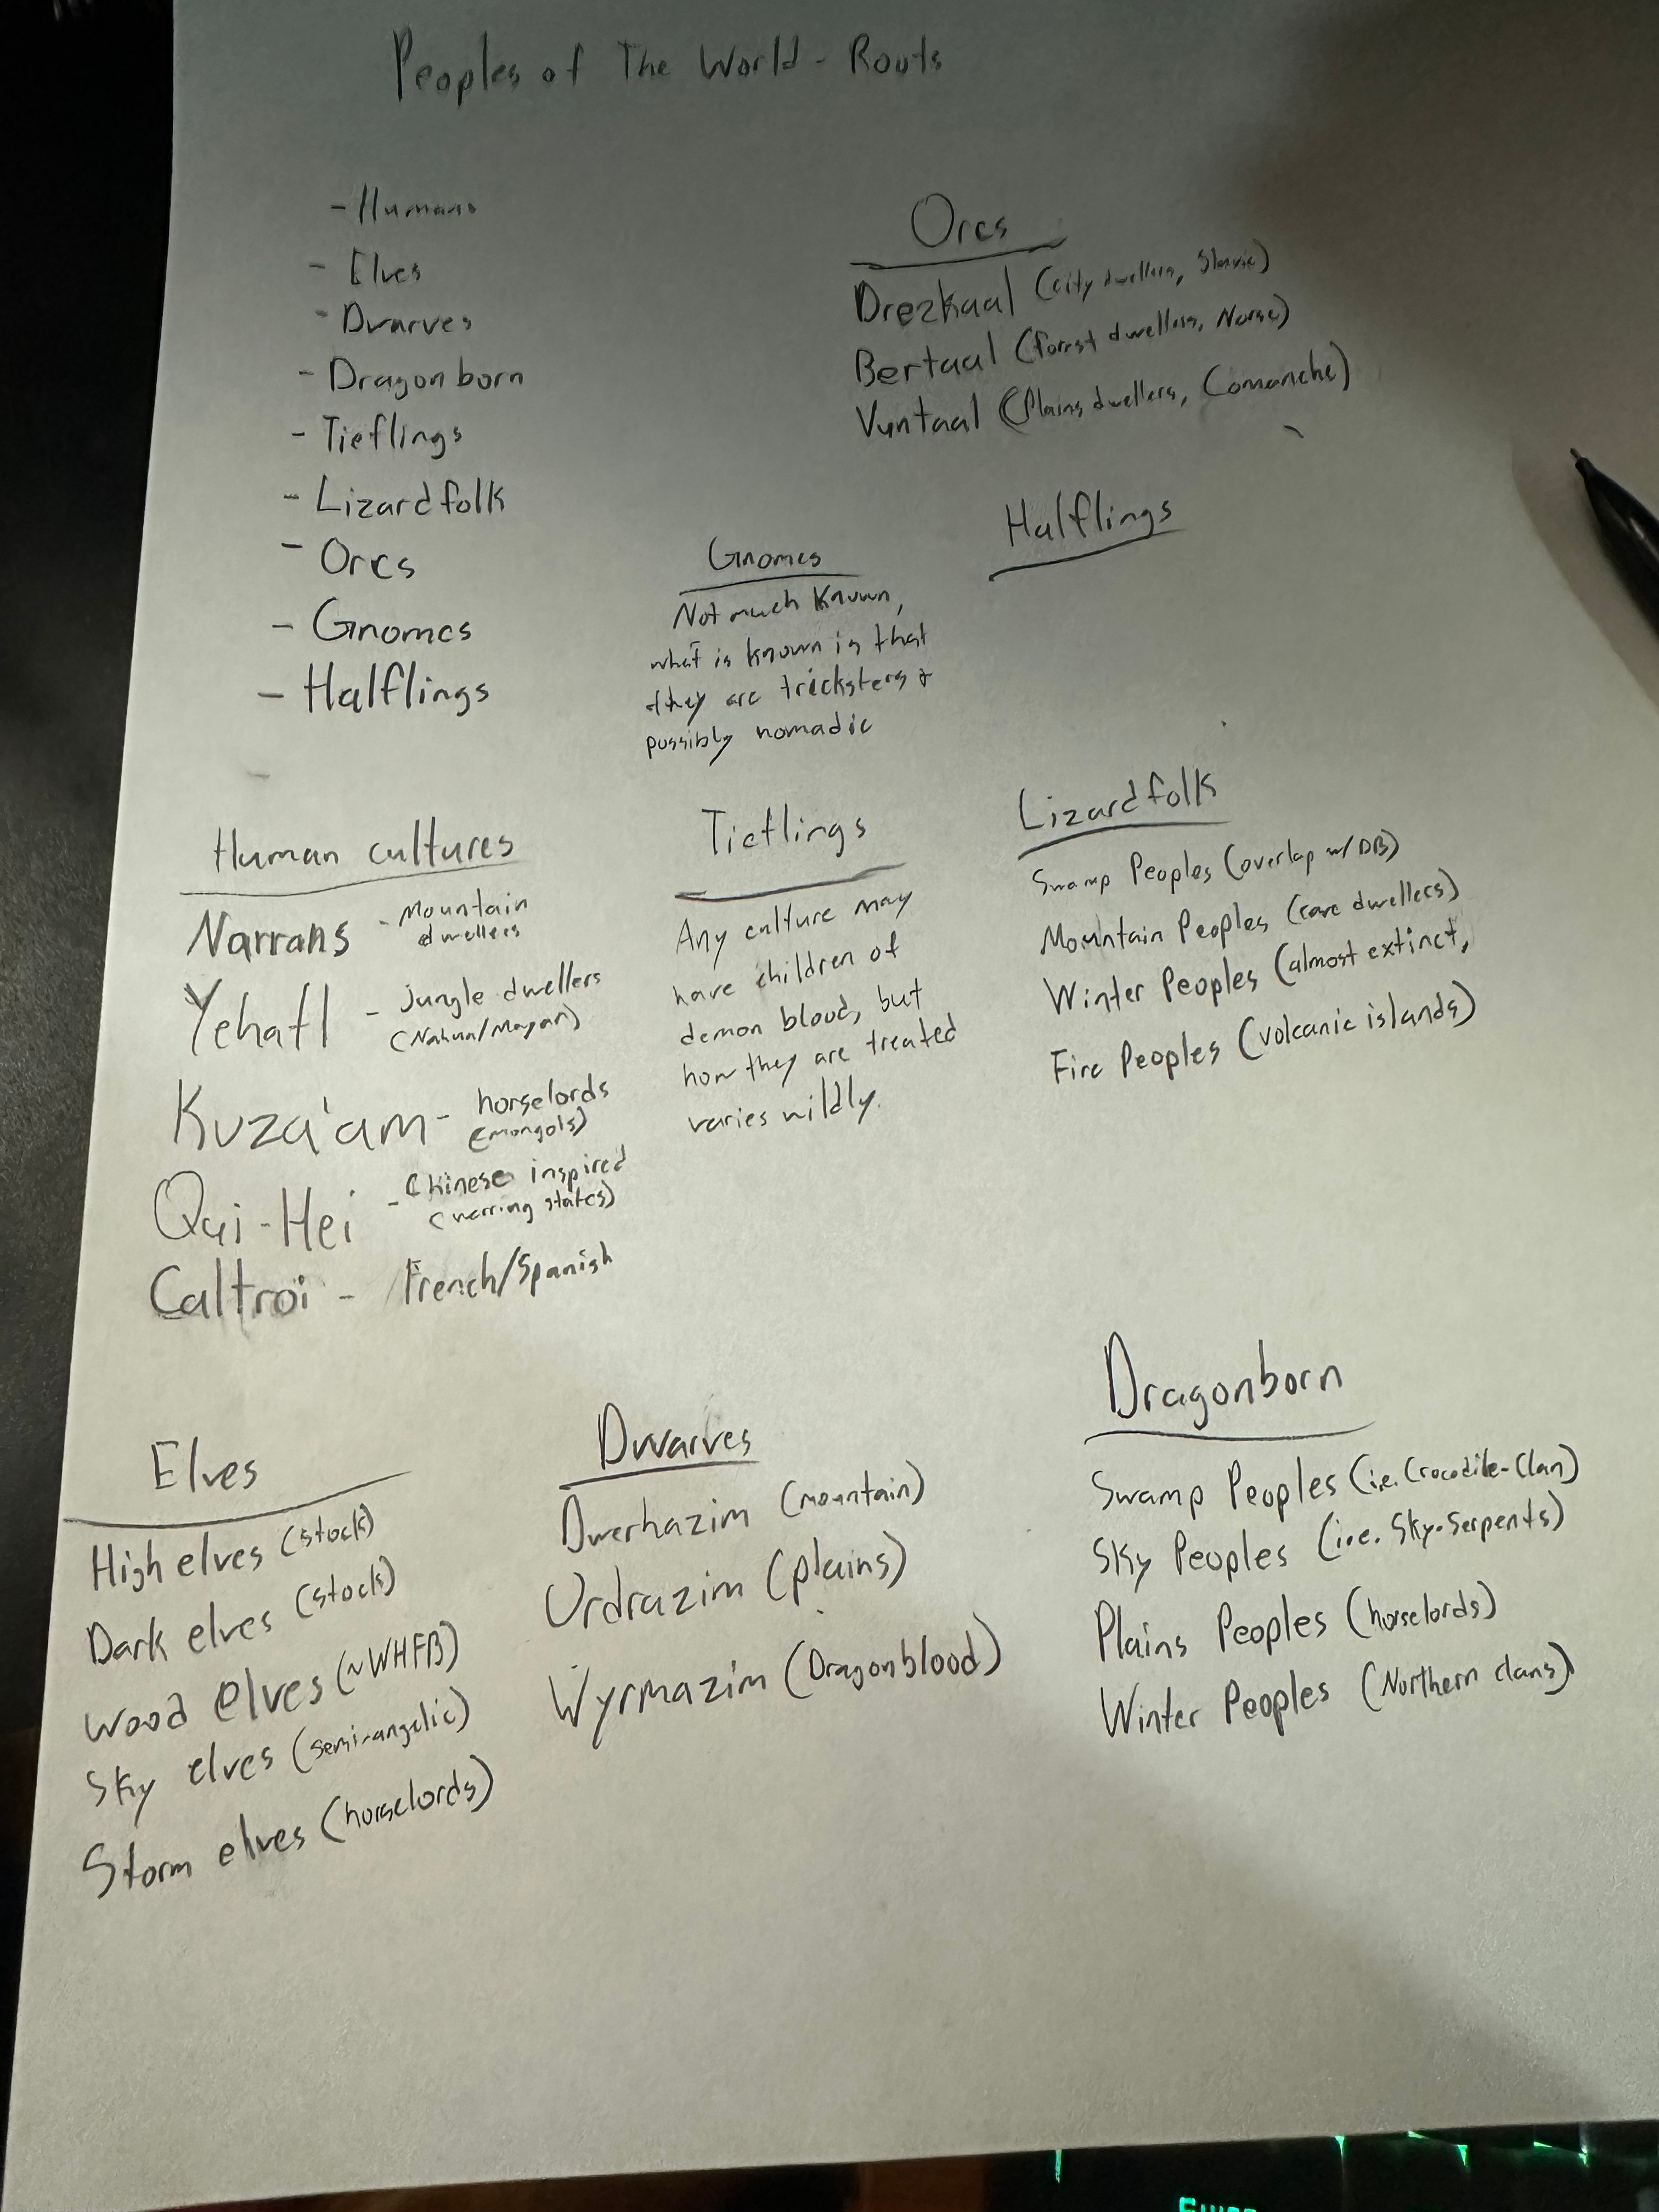 Peoples of The World - Roots
- Humans
- Elves
- Dwarves
- Dragonborn
- Tieflings
- Lizardfolk
- Orcs
- Gnomes
- Halflings
Orcs
Drezkaal (city dwellers, Slavic)
Bertaal (forest dwellers, Norse)
Vuntaal (Plains dwellers, Comanche)
Gnomes
Not much known,
what is known is that
they are tricksters &
possibly nomadic
Halflings
Human cultures
Narrans - Mountain
dwellers
Yehatl - Jungle dwellers
(Nahua/Mayan)
Kuza'am - horselords
(mongols)
Qui-Hei - Chinese inspired
(warring states)
Caltroi - French/Spanish
Tieflings
Any culture may
have children of
demon blood, but
how they are treated
varies wildly.
Lizardfolk
Swamp Peoples (overlap w/ DB)
Mountain Peoples (cave dwellers)
Winter Peoples (almost extinct,
Fire Peoples (volcanic islands)
Elves
High elves (stock)
Dark elves (stock)
Wood elves (~WHFB)
Sky elves (semi-angelic)
Storm elves (horselords)
Dwarves
Dwerhazim (mountain)
Urdrazim (plains)
Wyrmazim (Dragonblood)
Dragonborn
Swamp Peoples (i.e. Crocodile-Clan)
Sky Peoples (i.e. Sky-Serpents)
Plains Peoples (horselords)
Winter Peoples (Northern clans)